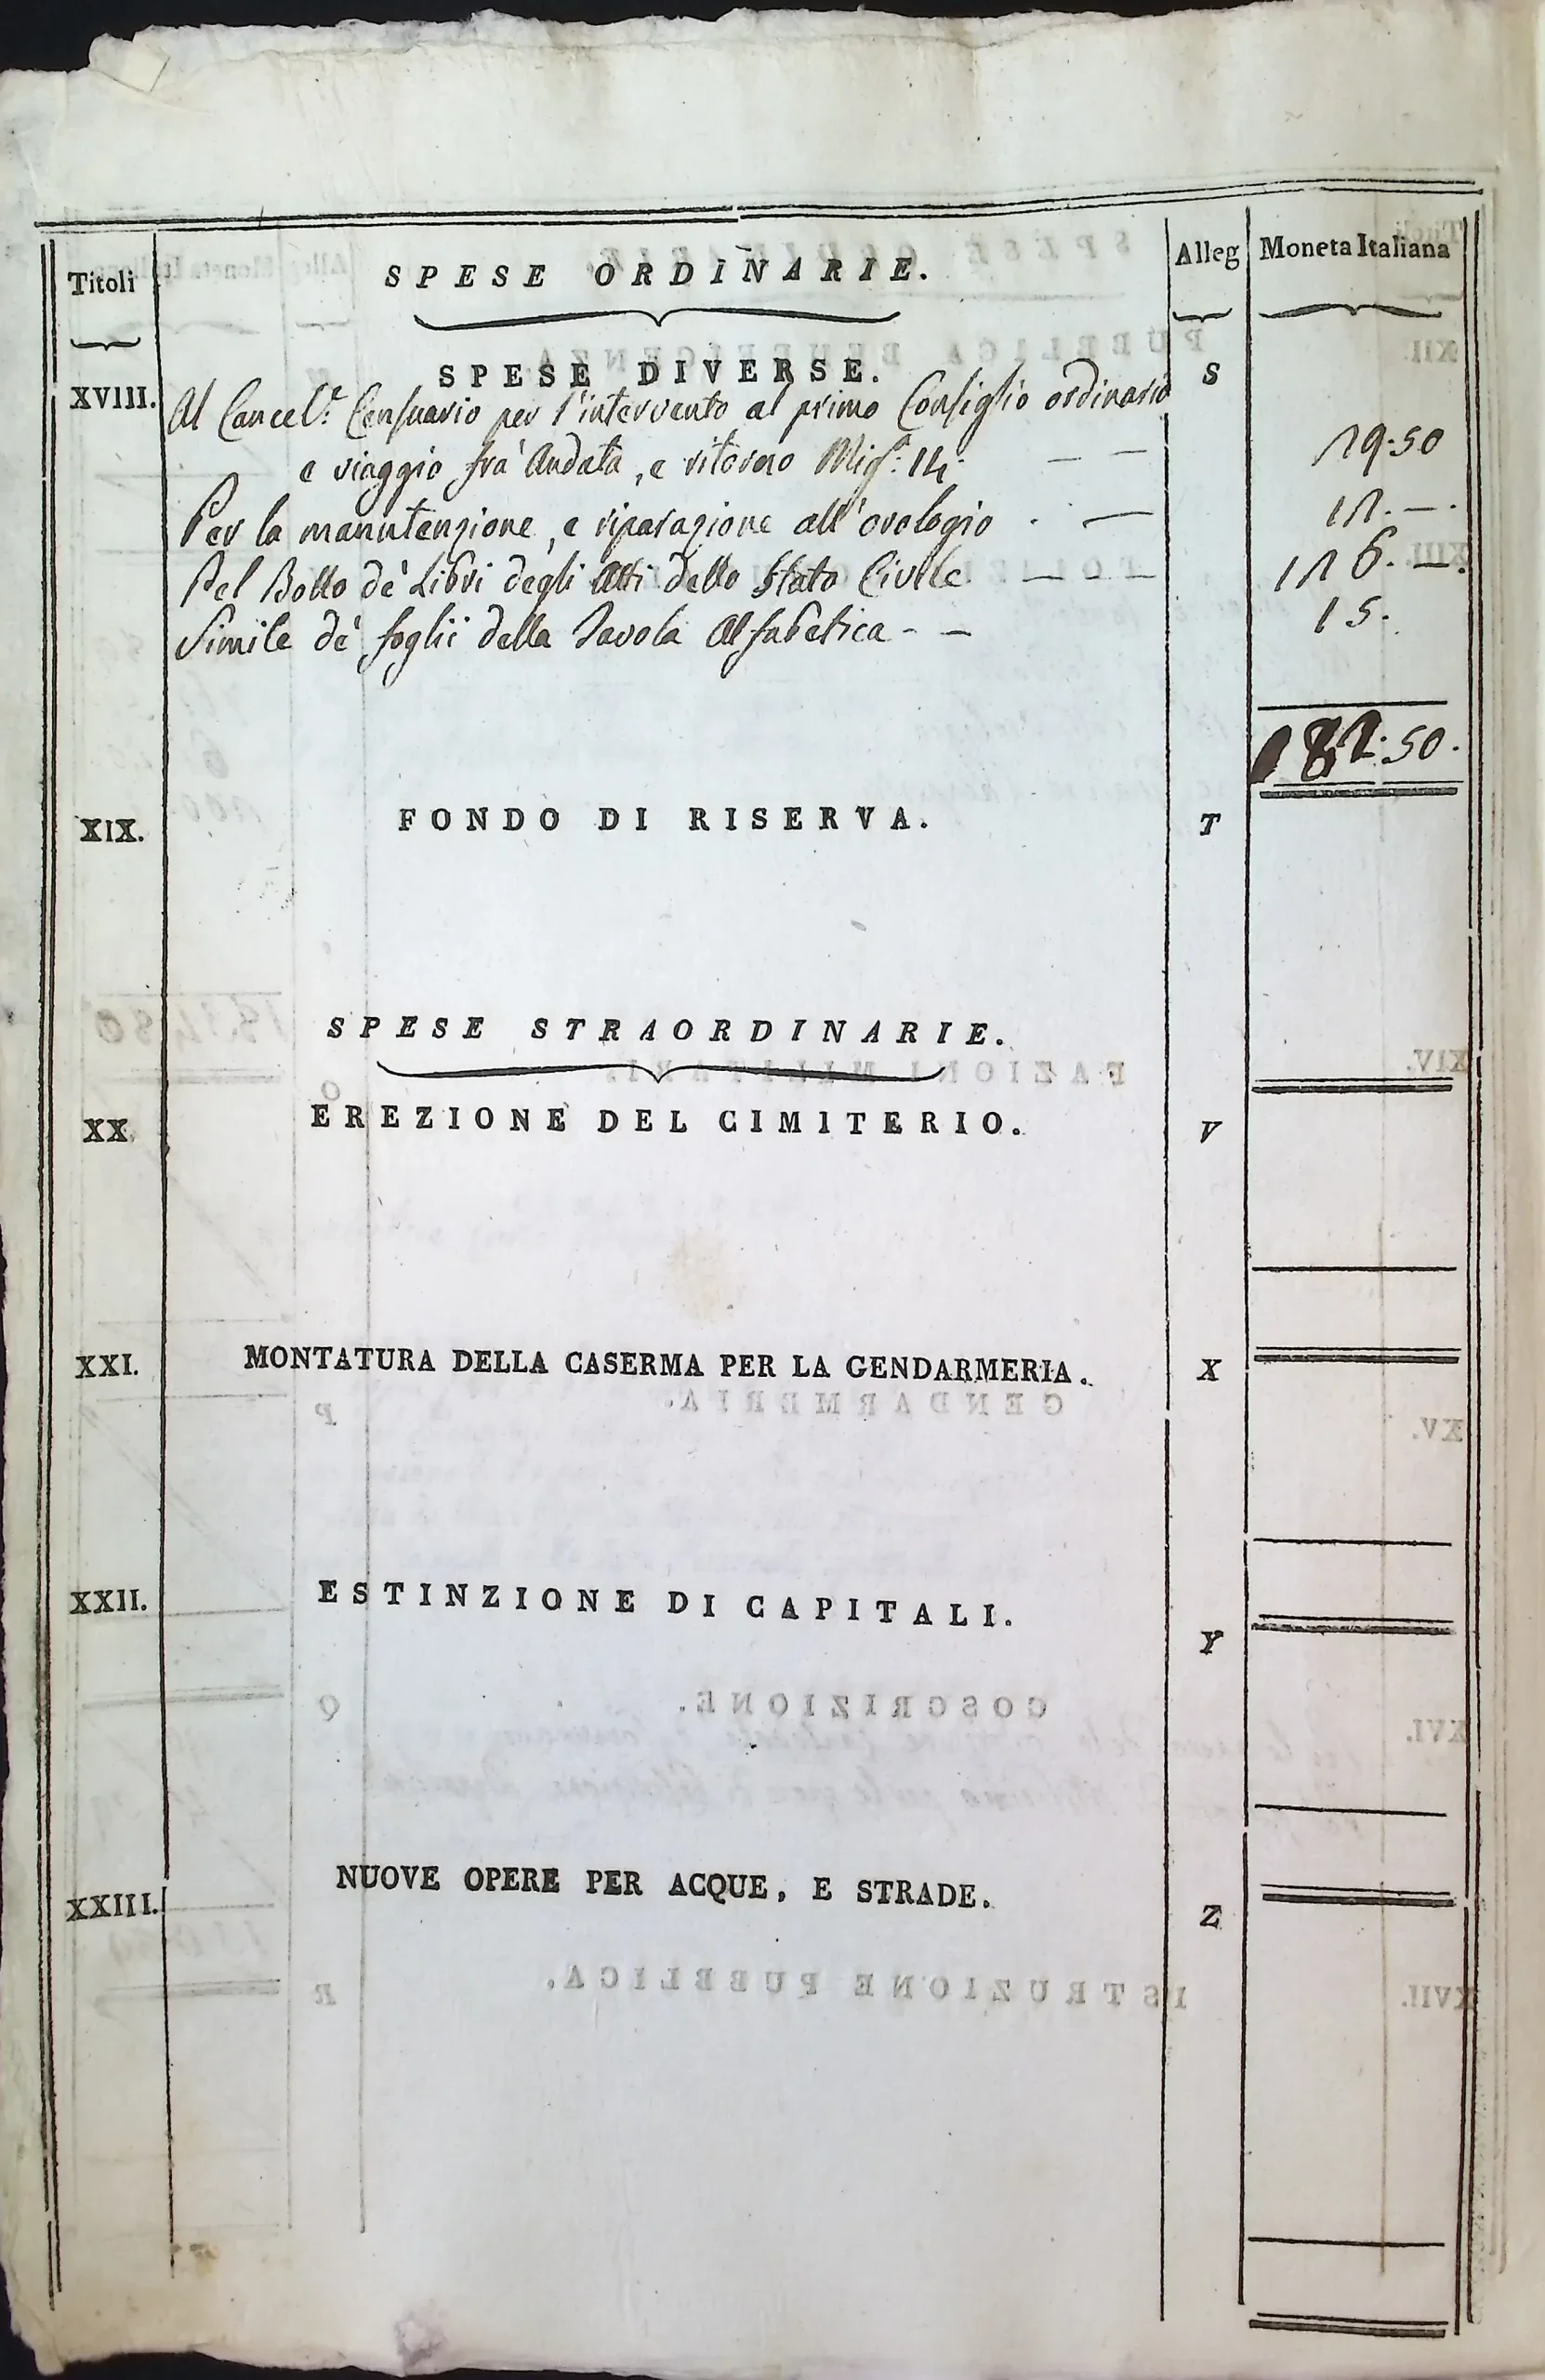 Titoli
SPESE ORDINARIE.
Alleg
Moneta Italiana
SPESE DIVERSE.
S
XVIII.
Al Cancel.e Censuario per l'intervento al primo Consiglio ordinario
e viaggio frà Andata, e ritorno Mig.a: 14. — —
29:50
Per la manutenzione, e riparazione all'orologio . —
12.—.
Pel Bollo de' Libri degli Atti dello Stato Civile — — —
126.—.
Simile de' foglii della Tavola Alfabetica - —
15.
182:50.
XIX.
FONDO DI RISERVA.
T
SPESE STRAORDINARIE.
XX.
EREZIONE DEL CIMITERIO.
V
XXI.
MONTATURA DELLA CASERMA PER LA GENDARMERIA.
X
XXII.
ESTINZIONE DI CAPITALI.
Y
XXIII.
NUOVE OPERE PER ACQUE, E STRADE.
Z